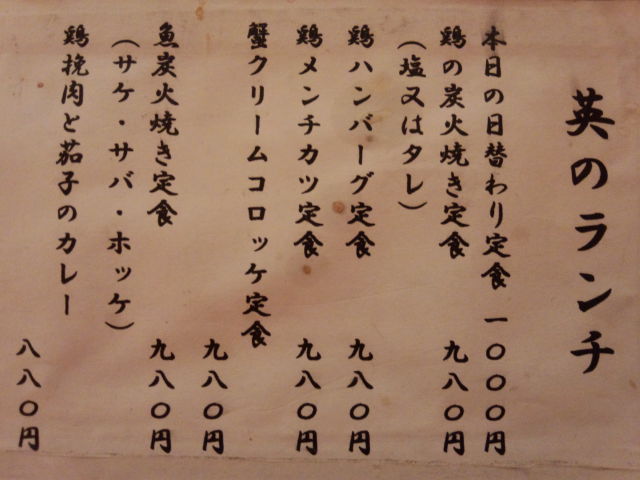 英のランチ
本日の日替わり定食 一〇〇〇円
鶏の炭火焼き定食 九八〇円
（塩又はタレ）
鶏ハンバーグ定食 九八〇円
鶏メンチカツ定食 九八〇円
蟹クリームコロッケ定食
九八〇円
魚炭火焼き定食 九八〇円
（サケ・サバ・ホッケ）
鶏挽肉と茄子のカレー
八八〇円